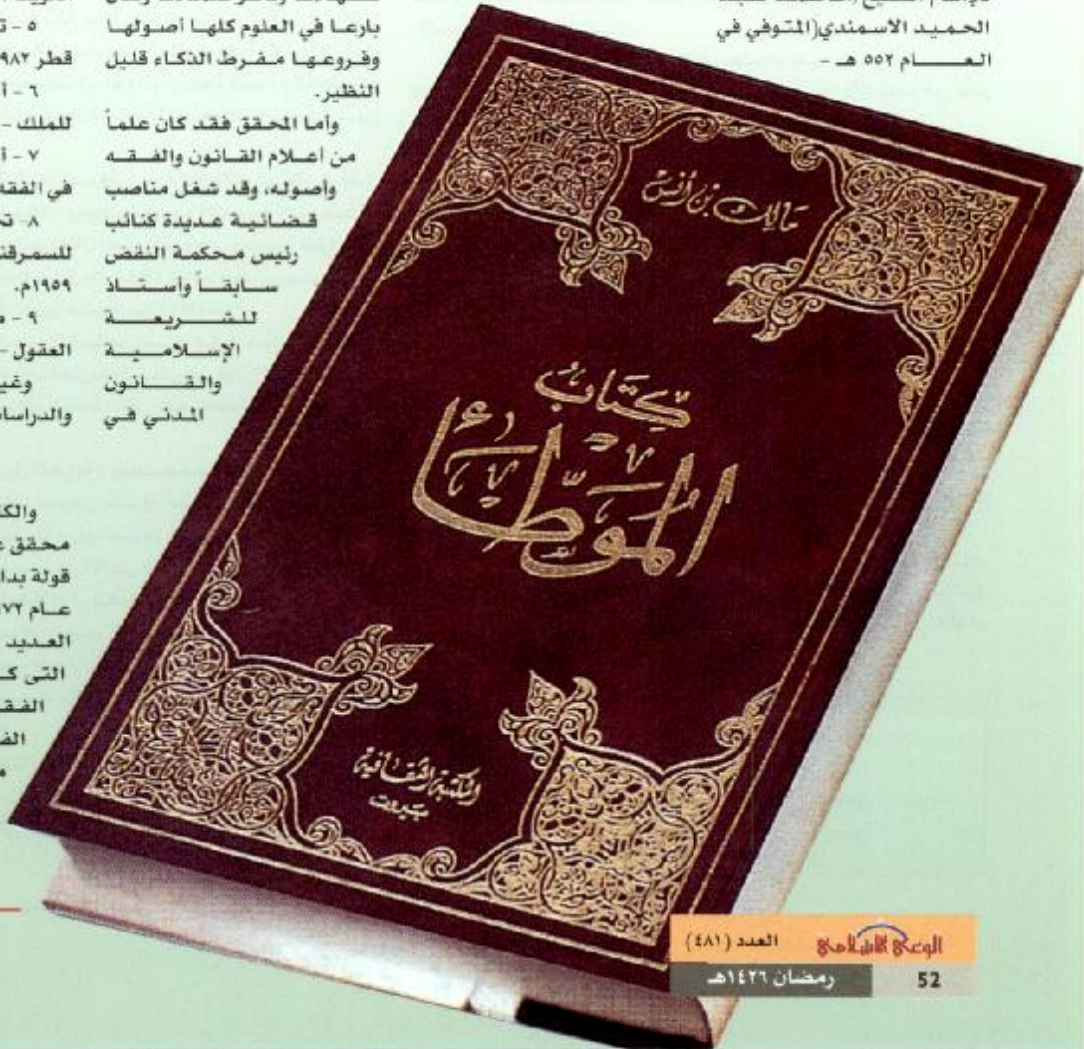 الحميد الاسمندي(المتوفي في
العـــــام ٥٥٢ هـ -
بارعا في العلوم كلها أصولها
وفروعها مفرط الذكاء قليل
النظير.
وأما المحقق فقد كان علماً
من أعلام القانون والفقه
وأصوله، وقد شغل مناصب
قضائية عديدة كنائب
رئيس محكمة النقض
سابقاً وأستاذ
للشريعة
الإسلامية
والقانون
المدني في
٥ - ت
قطر
٦ - أ
للملك -
٧ - أ
في الفقه
٨ -
١٩٥٩م.
٩ -
العقول -
والدراسات
محقق
قولة
عام
العديد
مالك بن أنس
كتاب
الموطأ
المكتبة الثقافية
بيروت
الوعي الإسلامي
العدد (٤٨١)
رمضان ١٤٢٦هـ
52